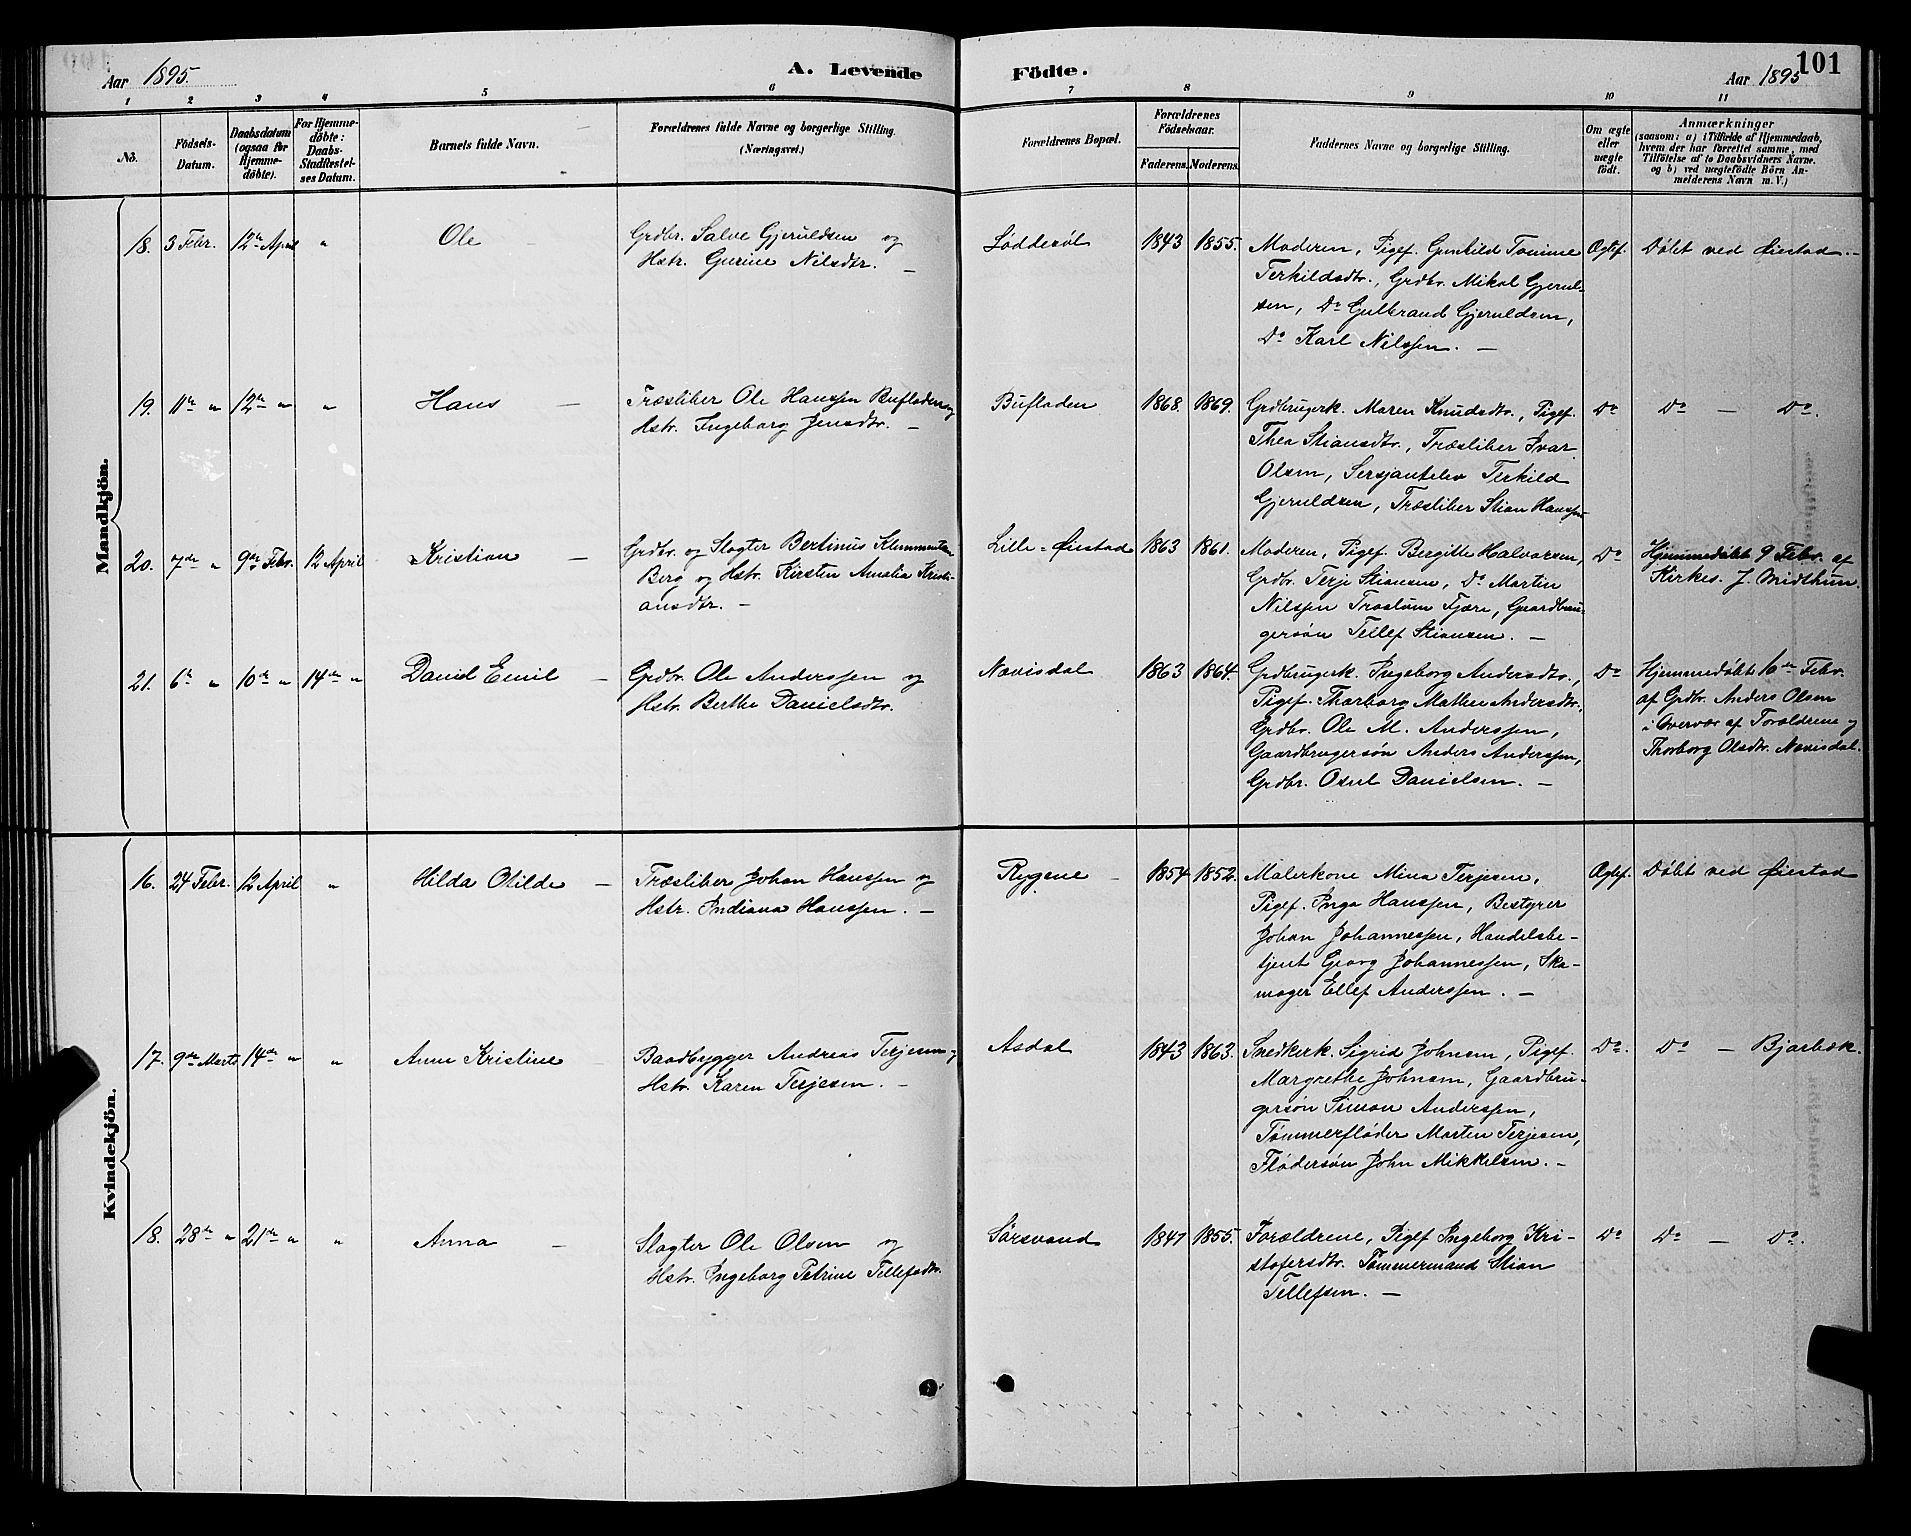 101
Aar 1895.
A. Levende Födte.
Aar 1895
1 2 3 4 5 6 7 8 9 10 11
No.
Födsels-Datum.
Daabsdatum (ogsaa for Hjemme-döbte).
For Hjemme-döbte: Daabs-Stadfæstel-ses Datum.
Barnets fulde Navn.
Forældrenes fulde Navne og borgerlige Stilling. (Næringsvei.)
Forældrenes Bopæl.
Forældrenes Födselsaar.
Faderens. Moderens.
Faddernes Navne og borgerlige Stilling.
Om ægte eller uægte födt.
Anmærkninger
(saasom: a) i Tilfælde af Hjemmedaab,
hvem der har forrettet samme, med
Tilföielse af to Daabsvidners Navne.
og b) ved uægtefödte Börn An-
melderens Navn m. V.)
Mandkjön.
18. 3 Febr. 12te April " Ole
Grdbr. Salve Gjeruldsen og
Hstr. Gurine Nilsdtr. –
Lödderöl 1843 1855.
Moderen, Pigef. Gunhild Tomine
Terkildsdtr., Grdbr. Mikal Gjerul-
sen, Do Gulbrand Gjeruldsen,
Do Karl Nilssen. –
Ægtef. Döbt ved Øiestad. –
19. 11te " 12te " " Hans –
Træsliber Ole Hanssen Bufladen og
Hstr. Ingeborg Jensdtr. –
Bufladen 1868. 1869.
Grdbrugerk. Maren Knudsdtr., Pigef.
Thea Stiansdtr., Træsliber Ivar
Olsen, Sersjantelev Terkild
Gjeruldsen, Træsliber Stian Hanssen
Do Do – Do.
20. 7de " 9de Febr. 12 April Kristian –
Grdbr. og Slagter Bertinus Klemmentsen
Berg og Hstr. Kirsten Amalia Kristi-
ansdtr. –
Lille-Øiestad 1863 1861.
Moderen, Pigef. Bergitte Halvorsen,
Grdbr. Terje Stiansen, Do Martin
Nilssen Trostum Fjære, Gaardbru-
gersön Tellef Stiansen. –
Do Hjemmedöbt 9 Febr. af
Kirkes. J. Midthun.
21. 6te " 10de " 14de " David Emil –
Grdbr. Ole Anderssen og
Hstr. Berthe Danielsdtr.
Nævisdal 1863 1864.
Grdbrugerk. Ingeborg Andersdtr.,
Pigef. Thorborg Mathea Andersdtr.,
Grdbr. Ole M. Anderssen,
Gaardbrugersön Anders Anderssen,
Grdbr. Osul Danielsen. –
Do Hjemmedöbt 10de Febr.
af Grdbr. Anders Olsen
i Overvær af Forældrene og
Thorborg Olsdtr. Nævisdal.
Kvindekjön.
16. 24 Febr. 12 April " Hilda Otilde –
Træsliber Johan Hanssen og
Hstr. Indiana Hanssen. –
Rygene – 1854 1852.
Malerkone Mina Terjesen,
Pigef. Inga Hanssen, Bestyrer
Johan Johannessen, Handelsbe-
tjent Georg Johannessen, Sko-
mager Ellef Anderssen. –
Ægtef. Döbt ved Øiestad
17. 9de Marts 14de " " Anne Kristine –
Baadbygger Andreas Terjesen og
Hstr. Karen Terjesen. –
Asdal 1843 1863.
Snedkerk. Sigrid Johnsen, Pigef.
Margrethe Johnsen, Gaardbru-
gersön Simon Anderssen,
Tömmerflöder Martin Terjesen,
Flödersön John Mikkelsen. –
Do. Do – Bjorbæk.
18. 28de " 21de " " Anna –
Slagter Ole Olsen og
Hstr. Ingeborg Petrine Tellefsdtr.
Sörsvand 1847 1855.
Forældrene, Pigef Ingeborg Kri-
stofersdtr. Tömmermand Stian
Tellefsen. –
Do Do – Do.